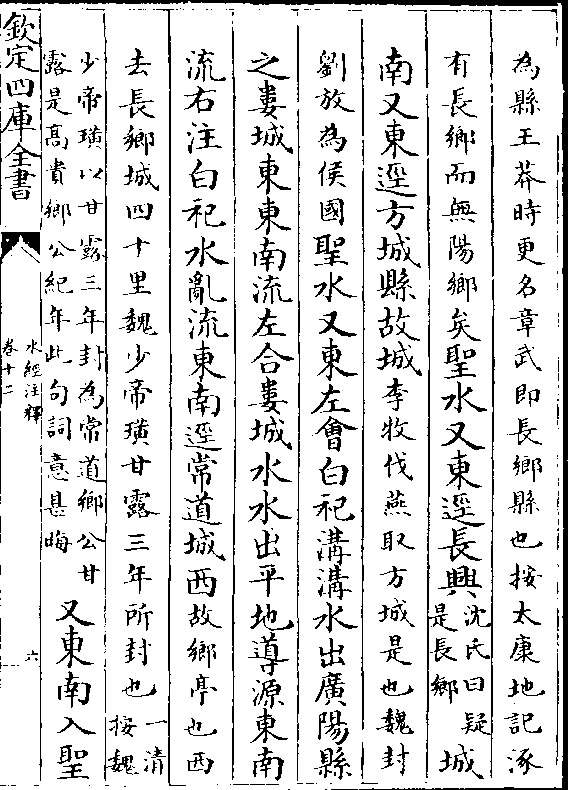 為縣王莽時更名章武即長鄉縣也按太康地記涿
有長鄉而無陽鄉矣聖水又東逕長興沈氏曰疑是長鄉城
南又東逕方城縣故城李牧伐燕取方城是也魏封
劉放為侯國聖水又東左會白祀溝溝水出廣陽縣
之婁城東東南流左合婁城水水出平地導源東南
流右注白祀水亂流東南逕常道城西故鄉亭也西
去長鄉城四十里魏少帝璜甘露三年所封也一清按魏
少帝璜以甘露三年封為常道鄉公甘
露是高貴鄉公紀年此句詞意甚晦
又東南入聖
欽定四庫全書
水經注釋
卷十二
六